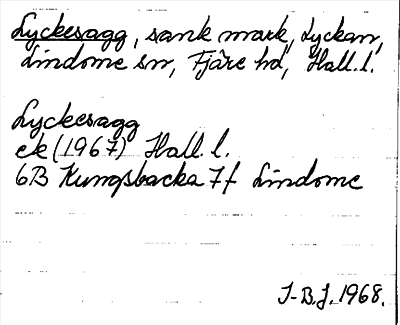 Lyckesagg, sank mark, Lyckan,
Lindome sn, Fjäre hd, Hall. l.
Lyckesagg
ek (1967) Hall. l.
6B Kungsbacka 7f Lindome
I-B.J. 1968.